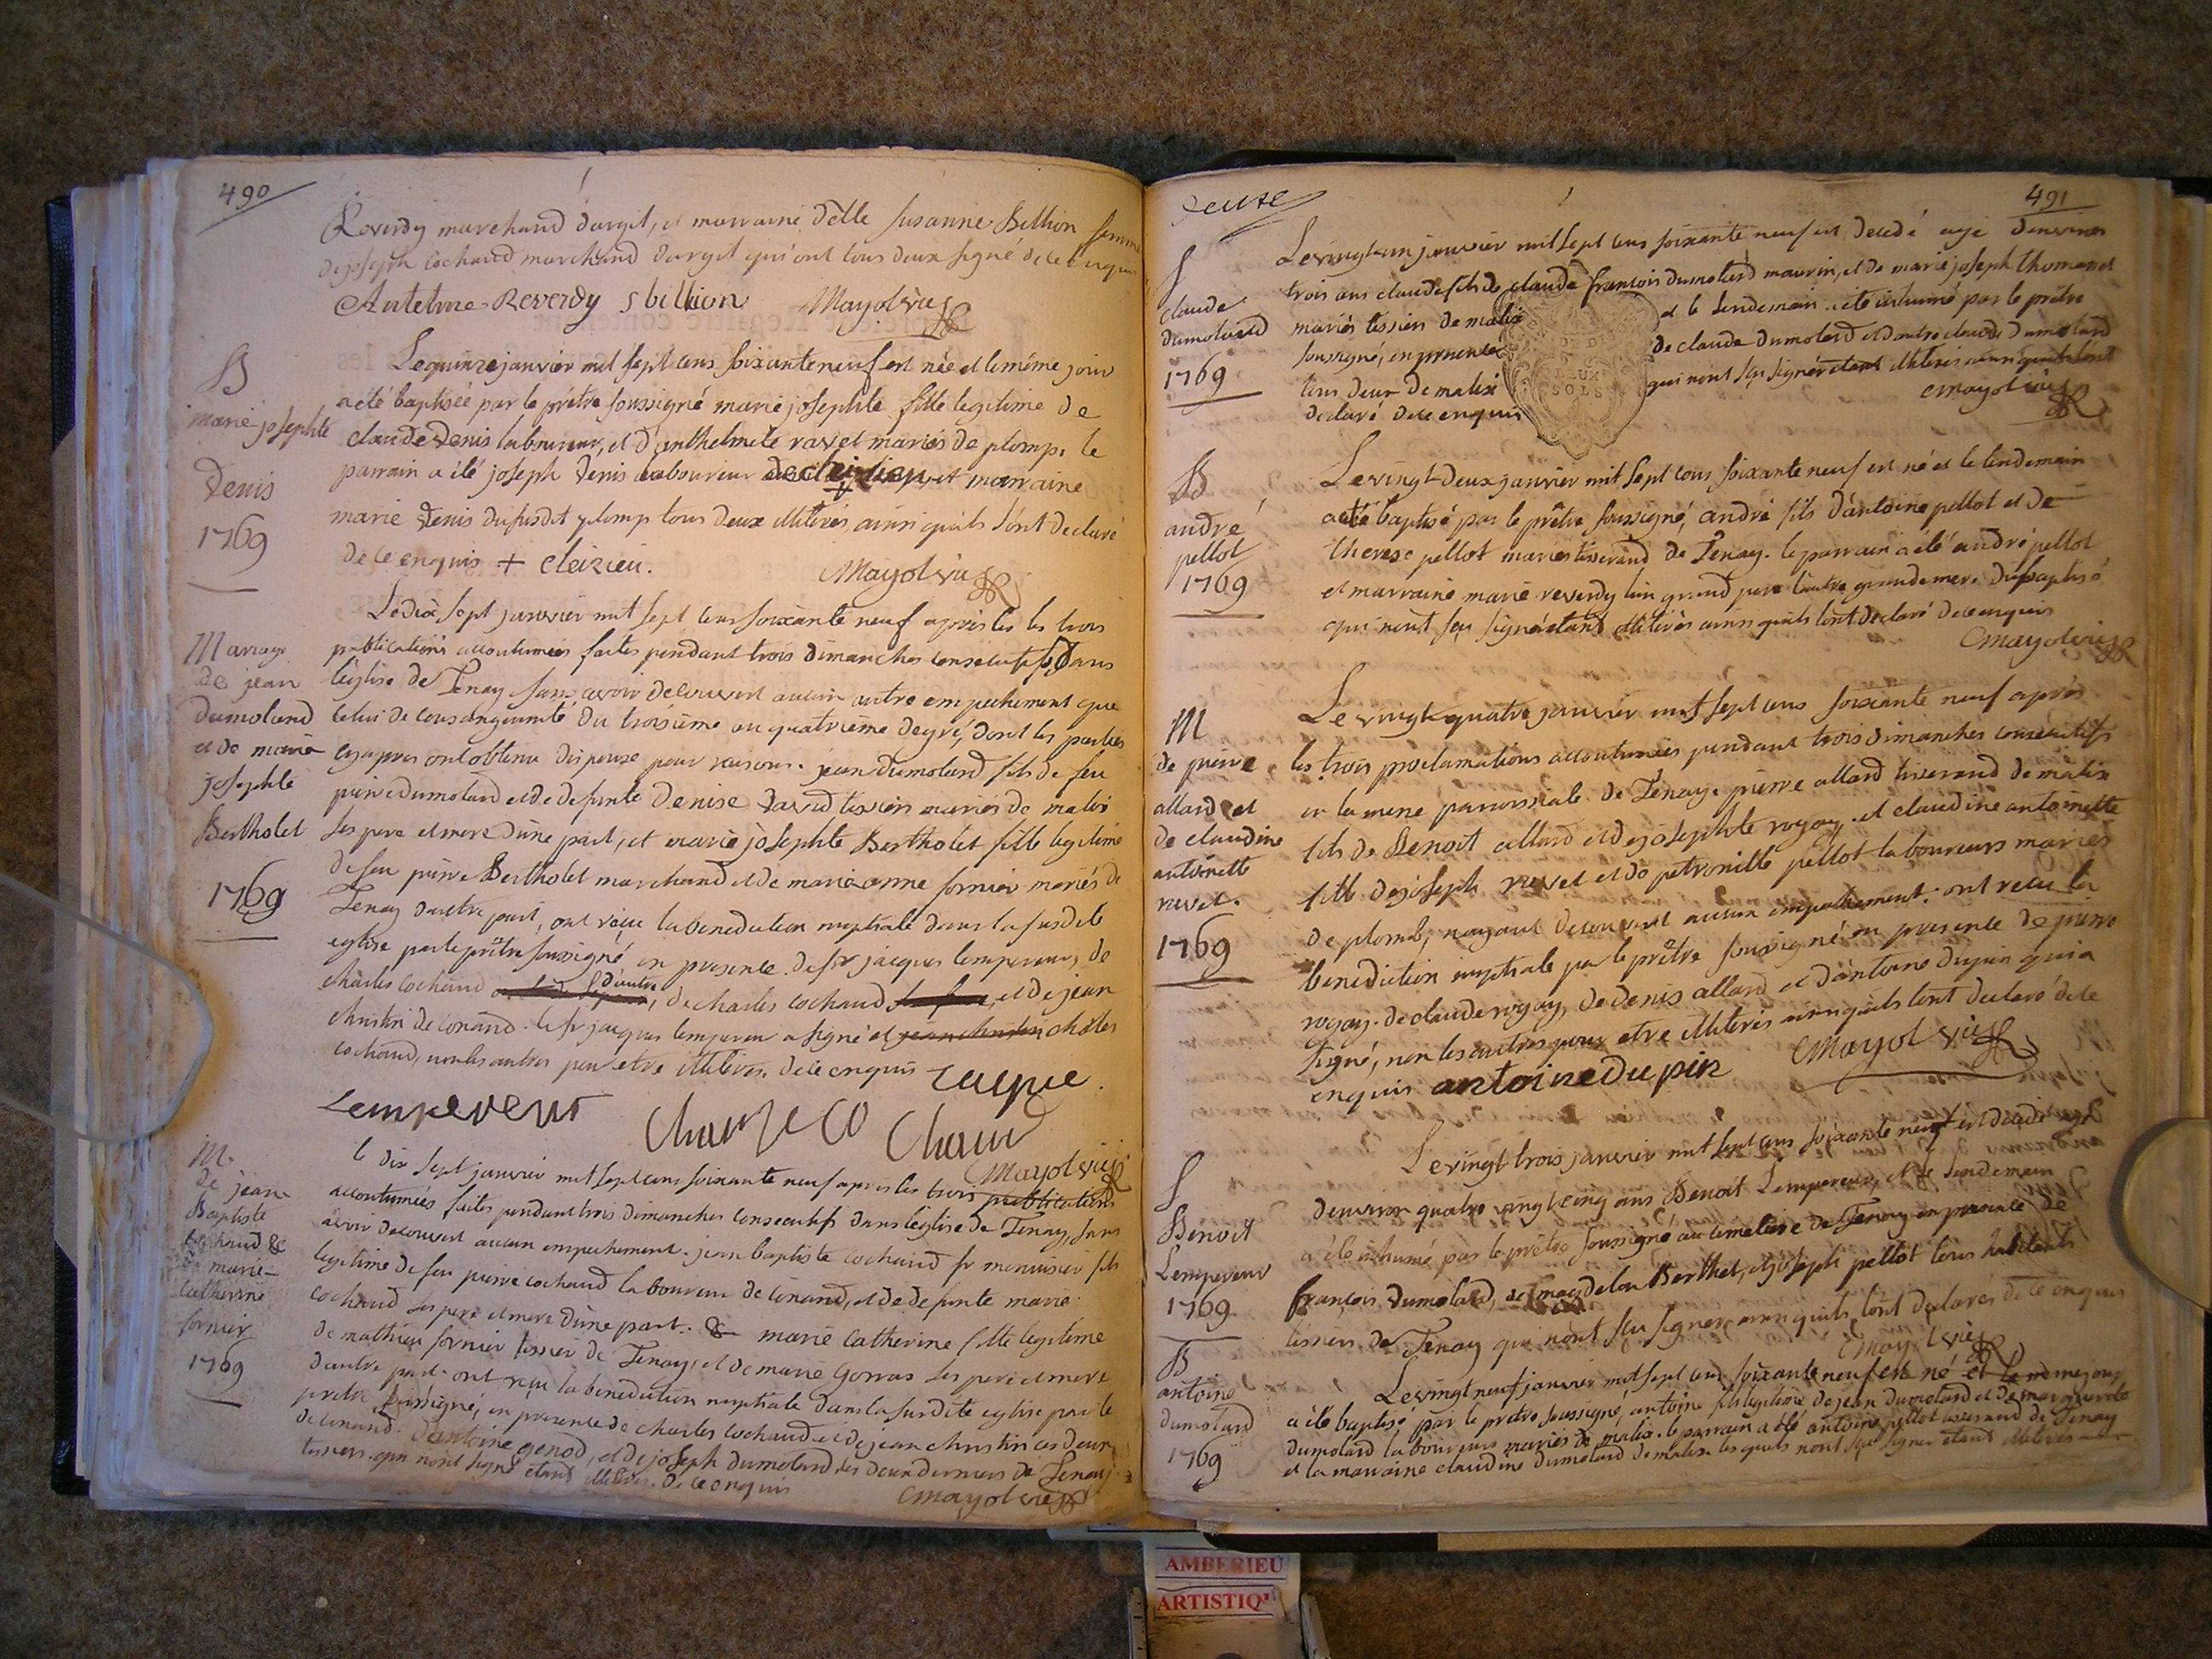 490
Reverdy marchand dargit, et marraine delle susanne Billion femme
de joseph Cochaud marchand dargit qui ont tous deux signé de ce enquis
Antelme Reverdy s billion Mayol vic
B
marie josephte
Denis
1769
Le quinze janvier mil sept cens soixante neuf est née et le même jour
a été baptisée par le prêtre soussigné marie josephte fille legitime de
claude Denis laboureur, et d'anthelmete ravet mariés de plomp. le
parrain a été joseph Denis laboureur et marraine
marie Denis du susdit plomp tous deux illiterés, ainsi quils l'ont declaré
de ce enquis + cleizieu. Mayol vic
Mariage
de jean
Dumolard
et de marie
josephte
Bertholet
1769
Le dix sept janvier mil sept cens soixante neuf après les trois
publications accoutumées faites pendant trois dimanches consecutifs dans
l'église de Tenay sans avoir decouvert aucun autre empechement que
celui de consanguinité du troisième au quatrième degré, dont les parties
ont obtenu dispense pour raisons. jean dumolard fils de feu
pierre dumolard et de defunte Denise David tissiers mariés de malix
ses pere et mere d'une part, et marie josephte Bertholet fille legitime
de feu pierre Bertholet marchand et de marie anne fornier mariés de
Tenay d'autre part, ont reçu la benediction nuptiale dans la susdite
eglise par le prêtre soussigné en presence de sr jacques lempereur, de
charles cochaud d'autre, de charles cochaud et de jean
christin de conand. le sr jacques lempereur a signé et jean christin charles
cochaud, non les autres pour etre illiterés. de ce enquis Jacque
Lempereur Charle Co Chaud
Mayol vic
M.
de jean
Baptiste
cochaud &
marie
Catherine
fornier
1769
le dix sept janvier mil sept cens soixante neuf apres les trois publications
accoutumées faites pendant trois dimanches consecutifs dans l'église de Tenay, sans
avoir decouvert aucun empechement. jean baptiste cochaud sr menuisier fils
legitime de feu pierre cochaud laboureur de conand, et de defunte marie
cochaud ses pere et mere d'une part. & marie Catherine fille legitime
de mathieu fornier tissier de Tenay, et de marie Gorras ses pere et mere
d'autre part. ont reçu la benediction nuptiale dans la susdite eglise par le
prêtre soussigné, en presence de charles cochaud et de jean christin ces deux
de conand. d'antoine genod, et de joseph dumolard les deux derniers de Tenay
tissiers. qui n'ont signé etant illiterés. de ce enquis Mayol vic
491
S
claude
dumolard
1769
Le vingt un janvier mil sept cens soixante neuf est decedé agé denviron
trois ans claude fils de claude françois dumolard maurin, et de marie joseph thomand
mariés tissiers de malix et le lendemain a été inhumé par le prêtre
soussigné, en presence de claude dumolard et d'autre claude dumolard
tous deux de malix qui n'ont sçu signer etant illiterés ainsi quils l'ont
declaré de ce enquis Mayol vic
DEUX
SOLS
B
andré
pellot
1769
Le vingt deux janvier mil sept cens soixante neuf est né et le lendemain
a été baptisé par le prêtre soussigné, andré fils d'antoine pellot et de
therese pellot mariés tisserand de Tenay. le parrain a été andré pellot
et marraine marie reverdy l'un grand pere l'autre grande mere du baptisé
qui n'ont sçu signer etant illiterés ainsi quils l'ont declaré de ce enquis
Mayol vic
M
de pierre
allard et
de claudine
antoinette
ravet.
1769
Le vingt quatre janvier mil sept cens soixante neuf après
les trois proclamations accoutumées pendant trois dimanches consecutifs
en la messe parroissiale de Tenay. pierre allard tisserand de malix
fils de Benoit allard et de josephte rogay. et claudine antoinette
fille de joseph ravet et de petronille pellot laboureurs mariés
de plomb, n'ayant decouvert aucun empechement. ont reçu la
benediction nuptiale par le prêtre soussigné en presence de pierre
rogay. de claude rogay, de Denis allard et d'antoine dupin qui a
signé, non les autres pour etre illiterés ainsi quils l'ont declaré de ce
enquis antoine Du pin Mayol vic
S
Benoit
Lempereur
1769
Le vingt trois janvier mil sept cens soixante neuf est decedé agé
denviron quatre vingt cinq ans Benoit Lempereur, et le lendemain
a été inhumé par le prêtre soussigné au cimetière de Tenay en presence de
françois dumolard, de magdelon Berthet, et joseph pellot tous habitants
tissiers de Tenay qui n'ont sçu signer ainsi quils l'ont declarés de ce enquis
Mayol vic
B
antoine
dumolard
1769
Le vingt neuf janvier mil sept cens soixante neuf est né et le meme jour
a été baptisé par le prêtre soussigné, antoine fils legitime de jean dumolard et de marguerite
dumolard laboureurs mariés de malix. le parrain a été antoine pellot tisserand de Tenay
et la marraine claudine dumolard de malix lesquels n'ont sçu signer etant illiterés
AMBERIEU
ARTISTIQ